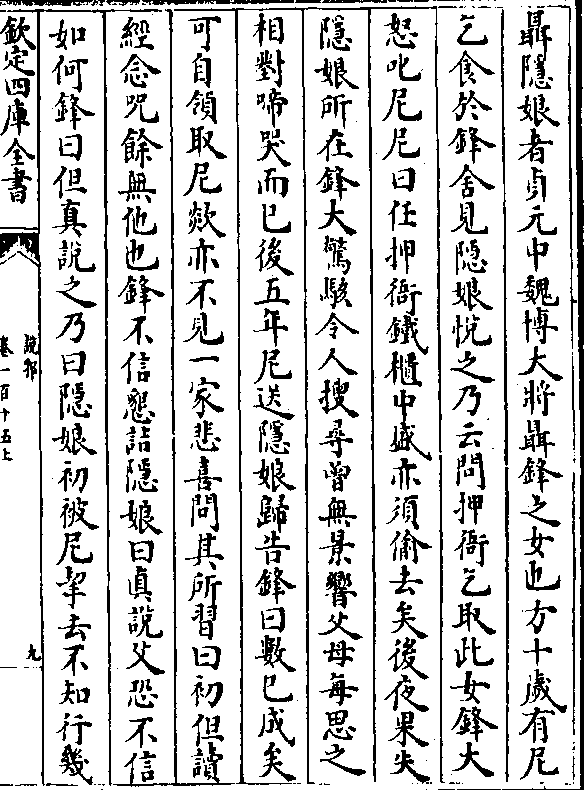 聶隱娘者貞元中魏博大將聶鋒之女也方十歲有尼
乞食於鋒舍見隱娘悅之乃云問押衙乞取此女鋒大
怒叱尼尼曰任押衙鐵櫃中盛亦須偷去矣後夜果失
隱娘所在鋒大驚駭令人搜尋曾無景響父母每思之
相對啼哭而已後五年尼送隱娘歸告鋒曰數已成矣
可自領取尼歘亦不見一家悲喜問其所習曰初但讀
經念咒餘無他也鋒不信懇詰隱娘曰真說父恐不信
如何鋒曰但真說之乃曰隱娘初被尼挈去不知行幾
欽定四庫全書
說郛
卷一百十五上
九